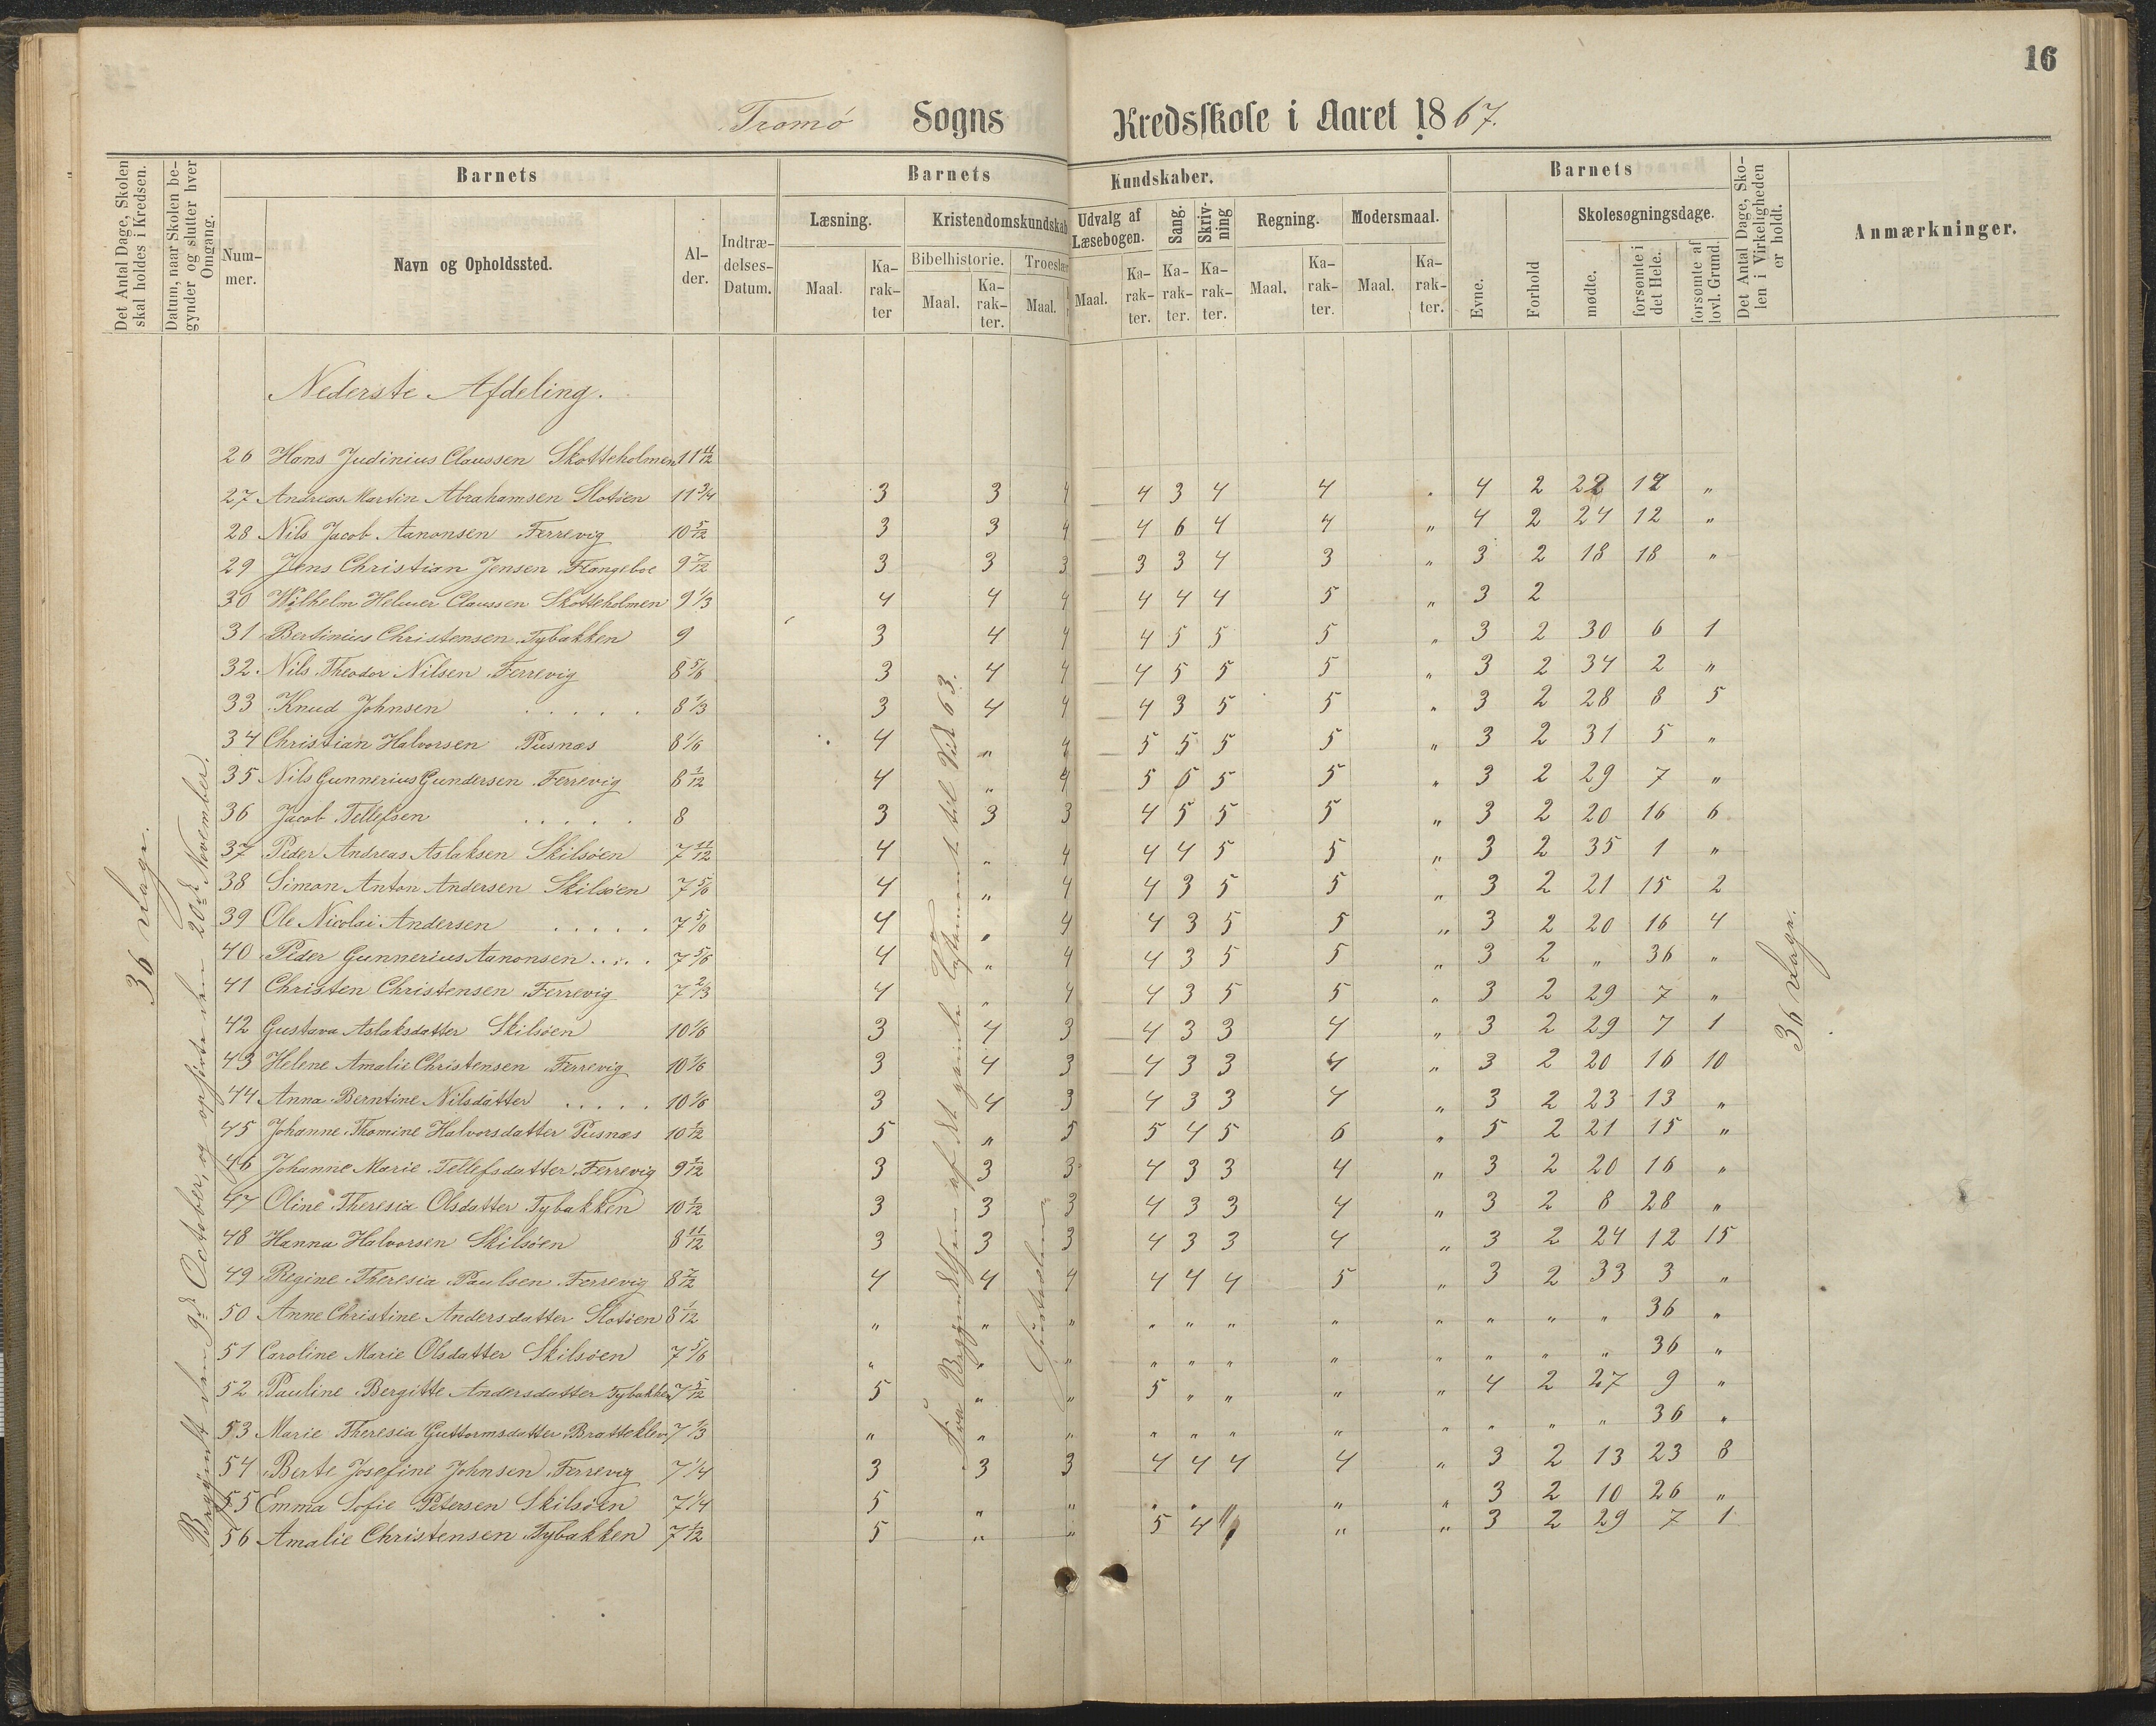 16
Tromö Sogns Kredsskole i Aaret 1867.
Det Antal Dage, Skolen skal holdes i Kredsen.
Datum, naar Skolen begynder og slutter hver Omgang.
Barnets
Barnets Kundskaber.
Barnets
Det Antal Dage, Skolen i Virkeligheden er holdt.
Anmærkninger.
Nummer.
Navn og Opholdssted.
Alder.
Indtrædelses-Datum.
Læsning.
Kristendomskundskab
Udvalg af Læsebogen.
Sang.
Skrivning
Regning.
Modersmaal.
Evne.
Forhold
Skolesøgningsdage.
Bibelhistorie.
Troeslær
Maal.
Karakter
Maal.
Karakter.
Maal.
Maal.
Karakter.
Karakter.
Karakter.
Maal.
Karakter.
Maal.
Karakter.
mødte.
forsømte i det Hele.
forsømte af lovl. Grund.
36 Dage.
Begyndt den 9de October, og ophørte den 20de November.
Fra Begyndelsen af det gamle Testament til Vid 63.
36 Dage.
Nederste Afdeling.
26 Hans Judinius Claussen Skotteholmen 11 11/12
27 Andreas Martin Abrahamsen Slotöen 11 3/4 3 3 4 4 3 4 4 . 4 2 22 12 "
28 Nils Jacob Aanonsen Ferrevig 10 5/12 3 3 4 4 6 4 4 " 4 2 24 12 "
29 Jens Christian Jensen Flangeboe 9 7/12 3 3 3 3 3 4 3 " 3 2 18 18 "
30 Wilhelm Helmer Claussen Skotteholmen 9 1/3 4 4 4 4 4 4 5 " 3 2
31 Bertinius Christensen Tybakken 9 3 4 4 4 5 5 5 " 3 2 30 6 1
32 Nils Theodor Nilsen Ferrevig 8 5/6 3 4 4 4 5 5 5 " 3 2 34 2 "
33 Knud Johnsen . . . . . 8 1/3 3 4 4 4 3 5 5 " 3 2 28 8 5
34 Christian Halvorsen Pusnæs 8 1/6 4 " 4 5 5 5 5 " 3 2 31 5 "
35 Nils Gunnerius Gundersen Ferrevig 8 1/12 4 " 4 5 6 5 5 " 3 2 29 7 "
36 Jacob Tellefsen . . . . . 8 3 3 3 4 5 5 5 " 3 2 20 16 6
37 Peder Andreas Aslaksen Skilsöen 7 11/12 4 " 4 4 4 5 5 " 3 2 35 1 "
38 Simon Anton Andersen Skilsöen 7 5/6 4 " 4 4 3 5 5 " 3 2 21 15 2
39 Ole Nicolai Andersen . . . . . 7 5/6 4 " 4 4 3 5 5 " 3 2 20 16 4
40 Peder Gunnerius Aanonsen . . . . 7 5/6 4 " 4 4 3 5 5 " 3 2 " 36 "
41 Christen Christensen Ferrevig 7 2/3 4 " 4 4 3 5 5 " 3 2 29 7 "
42 Gustava Aslaksdatter Skilsöen 10 1/6 3 4 3 4 3 3 4 " 3 2 29 7 1
43 Helene Amalie Christensen Ferrevig 10 1/6 3 4 3 4 3 3 4 " 3 2 20 16 10
44 Anna Berntine Nilsdatter . . . . . 10 1/6 3 4 3 4 3 3 4 " 3 2 23 13 "
45 Johanne Thomine Halvorsdatter Pusnæs 10 1/12 5 " 5 5 4 5 6 " 5 2 21 15 "
46 Johanne Marie Tellefsdatter Ferrevig 9 1/12 3 3 3 4 3 3 4 " 3 2 20 16 "
47 Oline Theresia Olsdatter Tybakken 10 1/12 3 3 3 4 3 3 4 " 3 2 8 28 "
48 Hanna Halvorsen Skilsöen 8 11/12 3 3 3 4 3 3 4 " 3 2 24 12 15
49 Regine Theresia Paulsen Ferrevig 8 7/12 4 4 4 4 4 4 5 " 3 2 33 3 "
50 Anne Christine Andersdatter Slotöen 8 1/12 " " " " " " " " " " " 36 "
51 Caroline Marie Olsdatter Skilsöen 7 5/6 " " " " " " " " " " " 36 "
52 Pauline Bergitte Andersdatter Tybakken 7 5/12 5 " " 5 " " " " 4 2 27 9 "
53 Marie Theresia Guttormsdatter Bratteklev 7 1/3 " " " " " " " " " " " 36 "
54 Berte Josefine Johnsen Ferrevig 7 1/4 3 3 3 4 4 4 4 " 3 2 13 23 8
55 Emma Sofie Petersen Skilsöen 7 1/4 5 " " " " " " " 3 2 10 26 "
56 Amalie Christensen Tybakken 7 1/12 5 " " 5 4 " " " 3 2 29 7 1